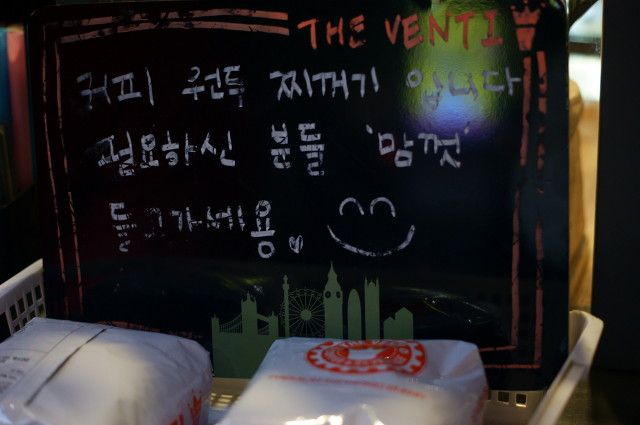 THE VENTI
커피 원두 찌꺼기 입니다
필요하신 분들 '맘껏'
들고가세용